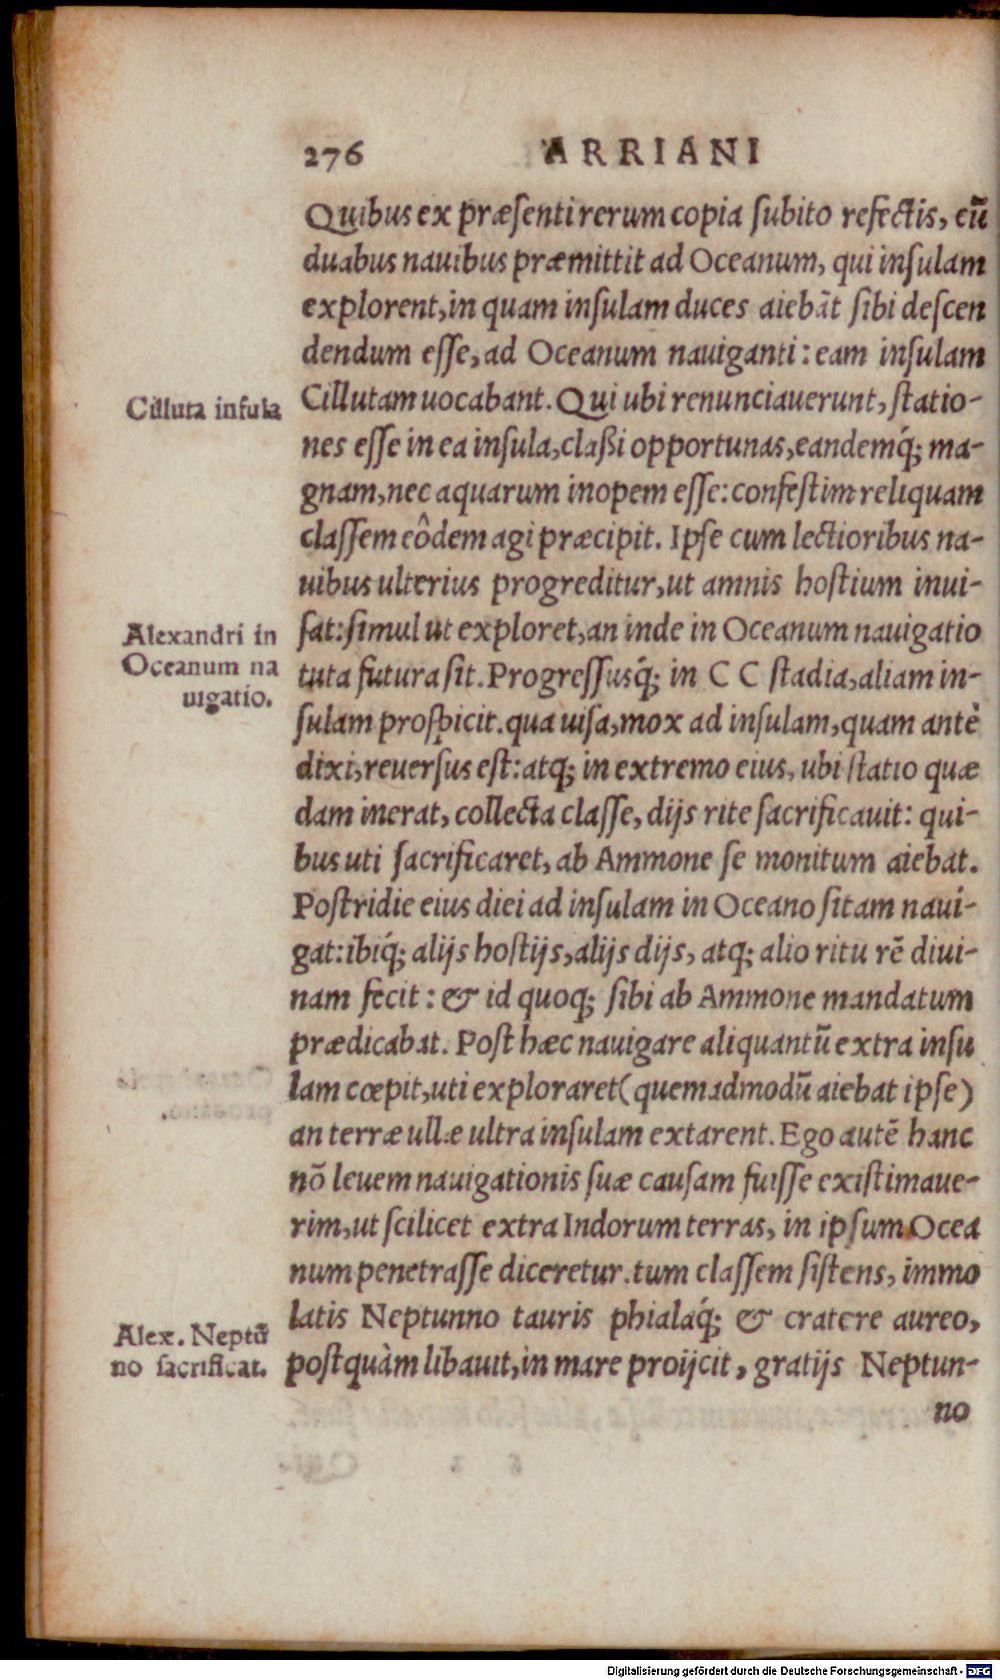 276 ARRIANI
Quibus ex præsenti rerum copia subito refectis, cū
duabus nauibus præmittit ad Oceanum, qui insulam
explorent, in quam insulam duces aiebāt sibi descen
dendum esse, ad Oceanum nauiganti: eam insulam
Cilluta insula
Cillutam uocabant. Qui ubi renunciauerunt, statio-
nes esse in ea insula, claßi opportunas, eandemq́; ma-
gnam, nec aquarum inopem esse: confestim reliquam
classem eôdem agi præcipit. Ipse cum lectioribus na-
uibus ulterius progreditur, ut amnis hostium inui-
Alexandri in
Oceanum na
uigatio.
sat: simul ut exploret, an inde in Oceanum nauigatio
tuta futura sit. Progressusq́; in CC stadia, aliam in-
sulam prospicit. qua uisa, mox ad insulam, quam antè
dixi, reuersus est: atq; in extremo eius, ubi statio quæ
dam inerat, collecta classe, dijs rite sacrificauit: qui-
bus uti sacrificaret, ab Ammone se monitum aiebat.
Postridie eius diei ad insulam in Oceano sitam naui-
gat: ibiq́; alijs hostijs, alijs dijs, atq; alio ritu rē diui-
nam fecit: & id quoq; sibi ab Ammone mandatum
prædicabat. Post hæc nauigare aliquantū extra insu
lam cœpit, uti exploraret (quemadmodū aiebat ipse)
an terræ ullæ ultra insulam extarent. Ego autē hanc
nō leuem nauigationis suæ causam fuisse existimaue-
rim, ut scilicet extra Indorum terras, in ipsum Ocea
num penetrasse diceretur. tum classem sistens, immo
Alex. Neptū
no sacrificat.
latis Neptunno tauris phialaq́; & cratere aureo,
postquàm libauit, in mare proijcit, gratijs Neptun-
no
Digitalisierung gefördert durch die Deutsche Forschungsgemeinschaft - DFG